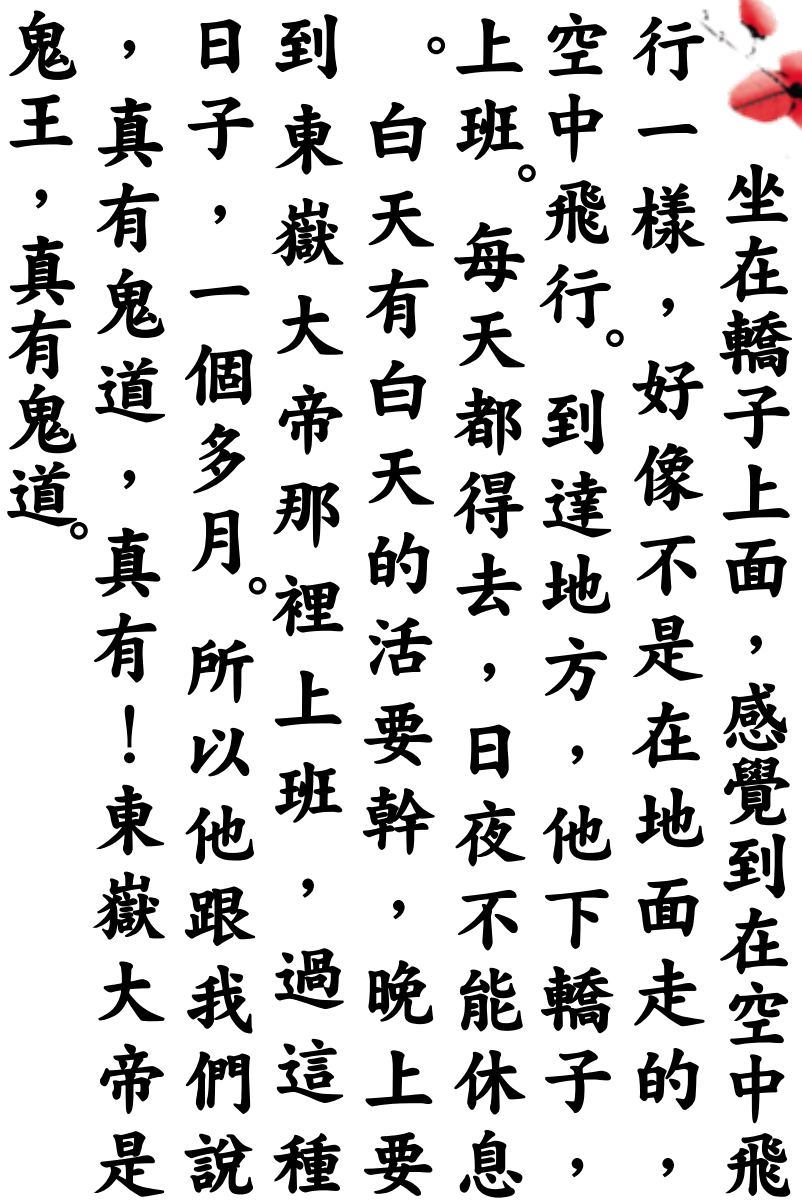 坐在轎子上面，感覺到在空中飛
行一樣，好像不是在地面走的，
空中飛行。到達地方，他下轎子，
上班。每天都得去，日夜不能休息
。白天有白天的活要幹，晚上要
到東嶽大帝那裡上班，過這種
日子，一個多月。所以他跟我們說
，真有鬼道，真有！東嶽大帝是
鬼王，真有鬼道。